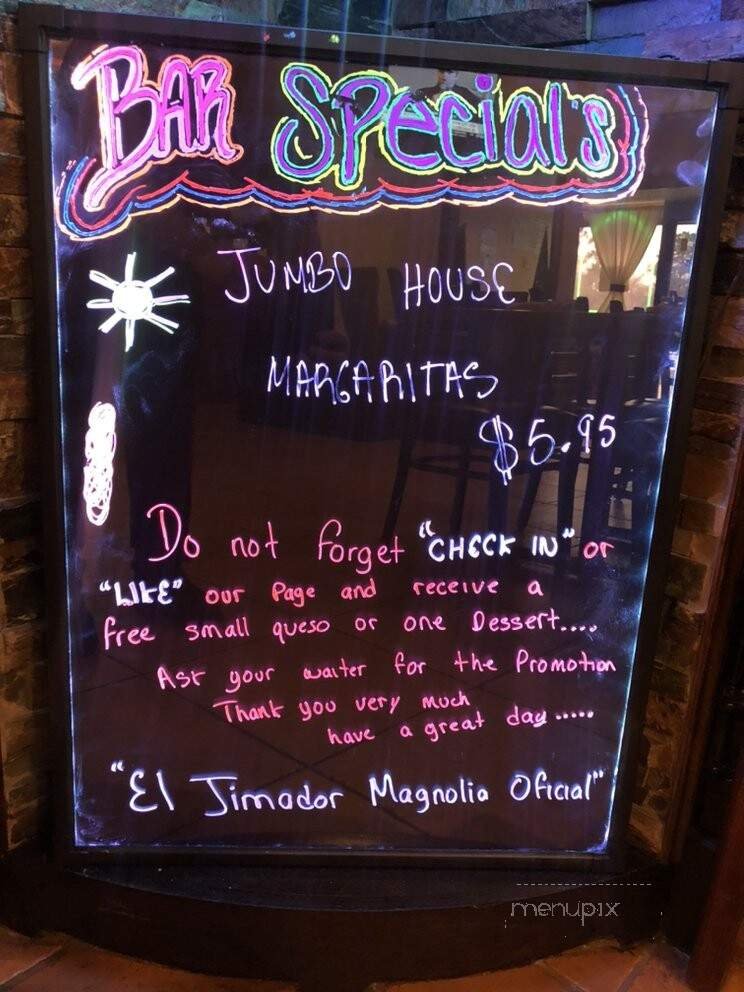 BAR SPecial's
JUMBO HOUSE
MARGARITAS
$5.95
Do not forget "CHECK IN" or
"LIKE" our Page and receive a
free small queso or one Dessert....
Ask your waiter for the Promotion
Thank you very much
have a great day.....
"El Jimador Magnolia Oficial"
menupix